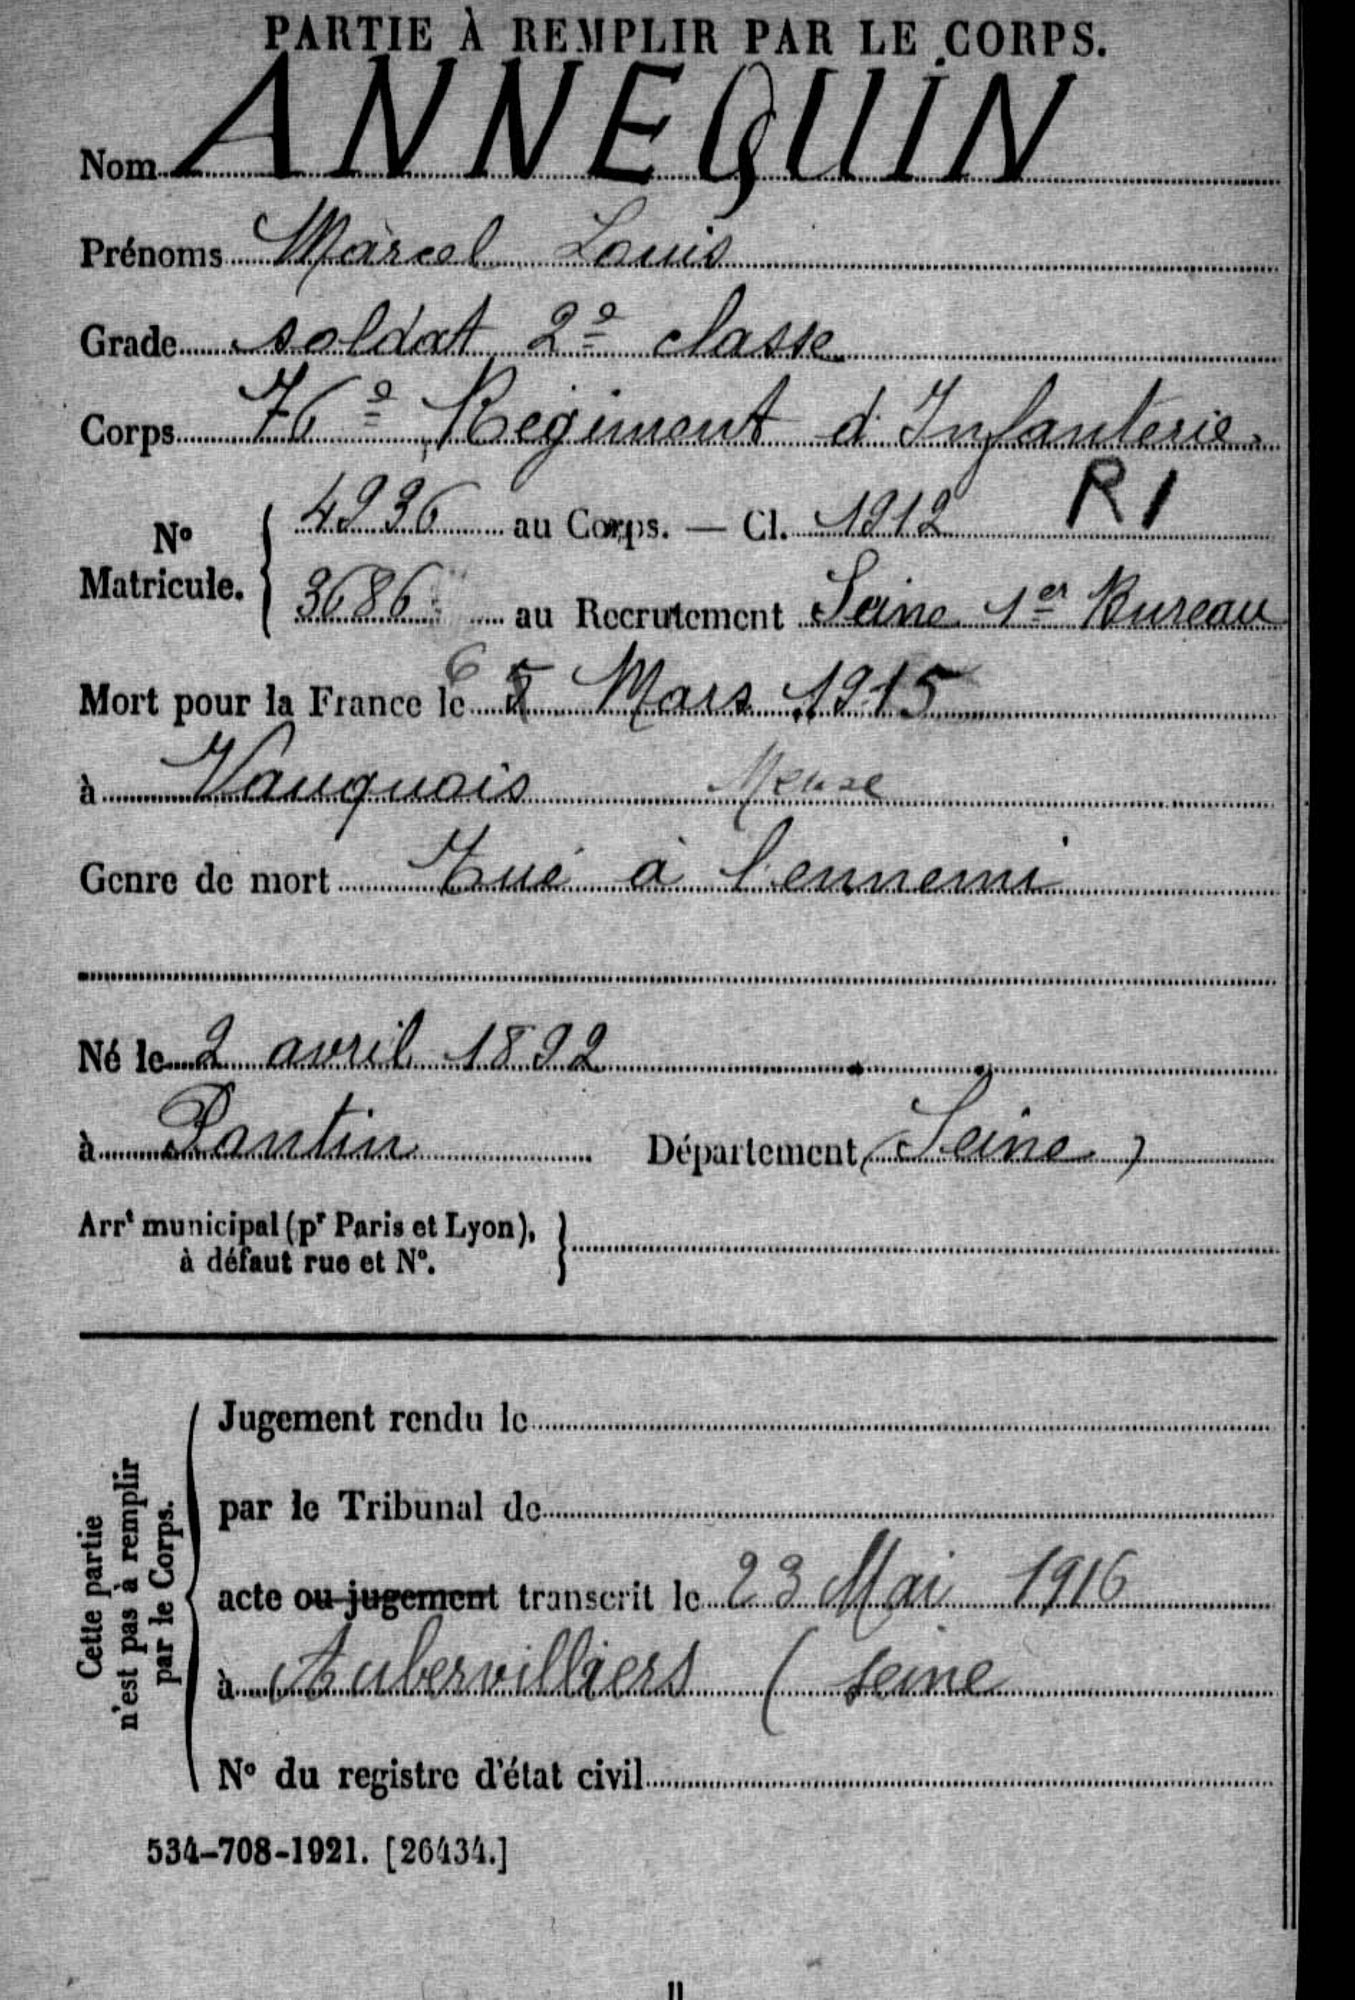 PARTIE À REMPLIR PAR LE CORPS.
Nom ANNEQUIN
Prénoms Marcel Louis
Grade soldat 2e classe
Corps 76e Régiment d'Infanterie.
No Matricule. 4936 au Corps. — Cl. 1912 RI
3686 au Recrutement Seine 1er Bureau
Mort pour la France le 6 5 Mars 1915
à Vauquois Meuse
Genre de mort Tué à l'ennemi
Né le 2 avril 1892
à Pantin Département (Seine)
Arrt municipal (pr Paris et Lyon), à défaut rue et No.
Cette partie n'est pas à remplir par le Corps.
Jugement rendu le
par le Tribunal de
acte ou jugement transcrit le 23 Mai 1916
à Aubervilliers (Seine
No du registre d'état civil
534-708-1921. [26434.]